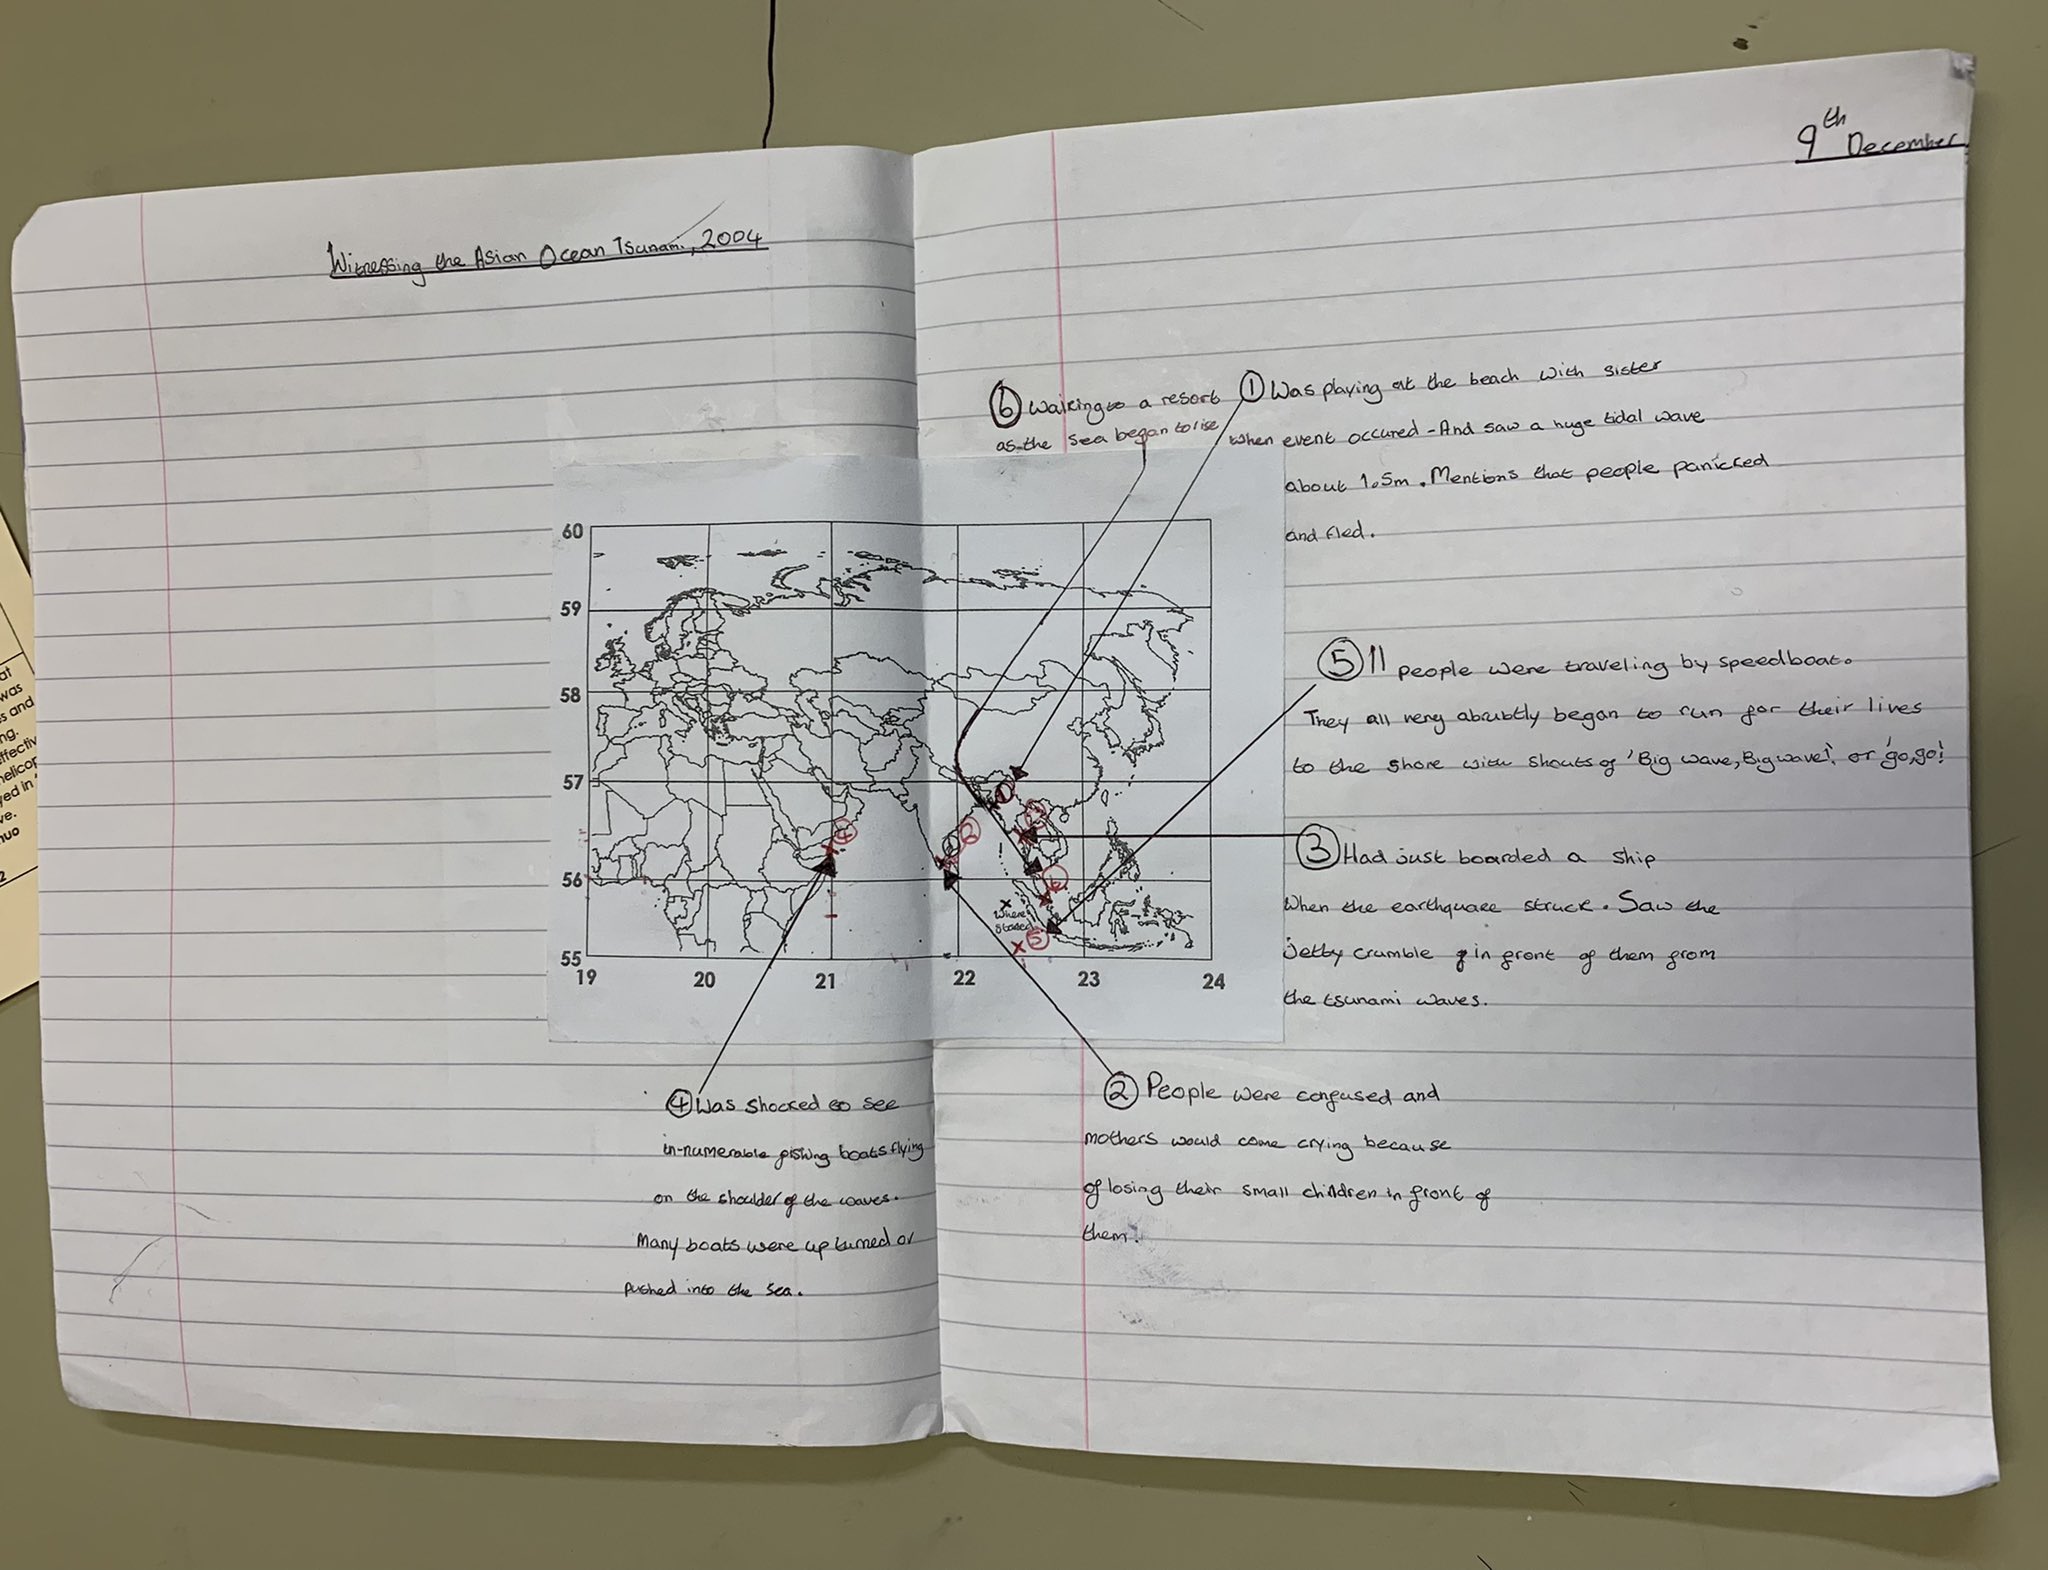 9th December
Witnessing the Asian Ocean Tsunami, 2004
⑥ Walking to a resort
as the sea began to rise
① Was playing at the beach with sister
when event occured - And saw a huge tidal wave
about 1.5m. Mentions that people panicked
and fled.
⑤ 11 people were traveling by speedboat.
They all very abrubtly began to run for their lives
to the shore with shouts of 'Big wave, Big wave!', or 'go, go!'
③ Had just boarded a ship
when the earthquake struck. Saw the
Jetty crumble in front of them from
the tsunami waves.
④ Was shocked to see
in-numerable fishing boats flying
on the shoulder of the waves.
Many boats were up turned or
pushed into the sea.
② People were confused and
mothers would come crying because
of losing their small children in front of
them.
60
59
58
57
56
55
19 20 21 22 23 24
①
④
②
⑥
Where
started
⑤
at
was
s and
ng.
ffectiv
helicop
yed in
ve.
nuo
2